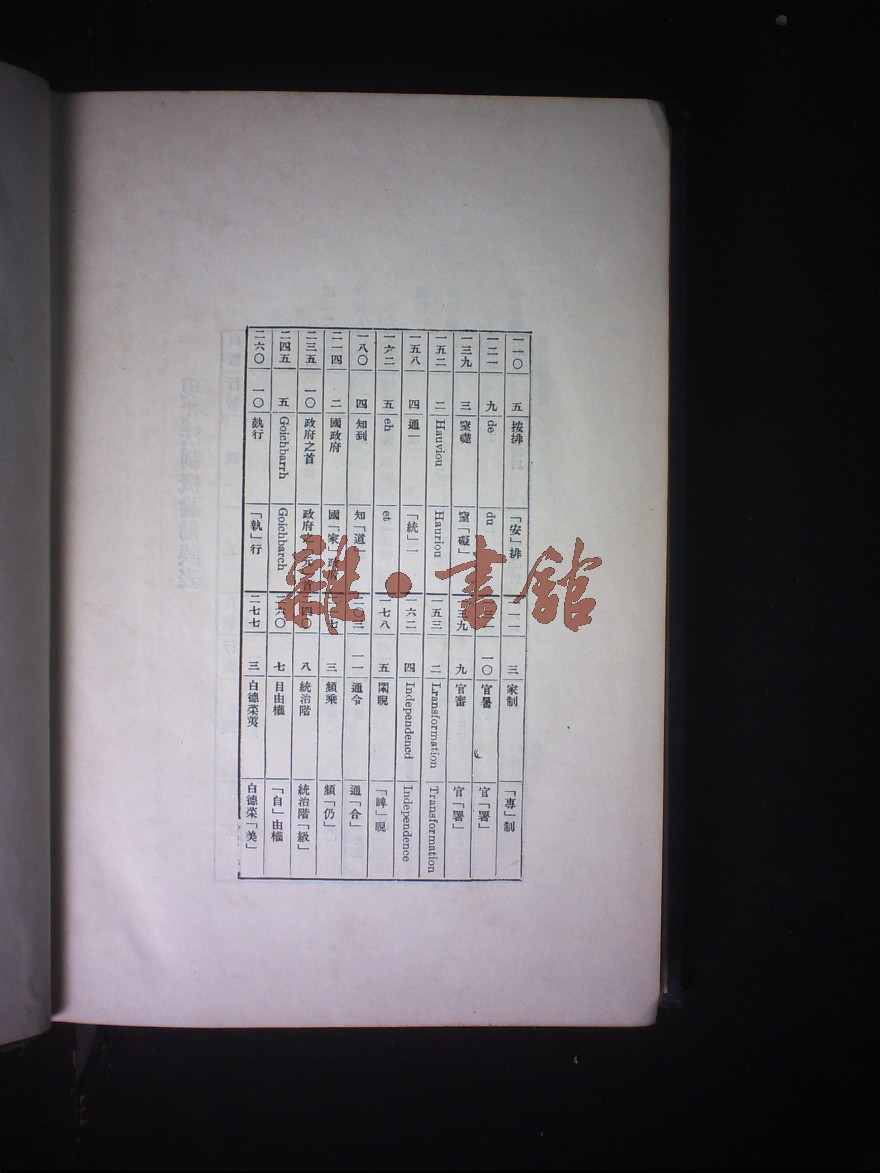 一一〇 五 按排 「安」排
一二一 九 de du
一三九 三 窒礎 窒「礙」
一五二 二 Hauviou Hauriou
一五八 四 通一 「統」一
一六二 五 eh et
一八〇 四 知到 知「道」
二一四 二 國政府 國「家」政府
二三五 一〇 政府之首 政府之
二四五 五 Goichbarrh Goichbarch
二六〇 一〇 行 「執」行
三 家制 「專」制
一〇 官暑 官「署」
一三九 九 官審 官「署」
一五三 二 Lransformation Transformation
一六二 四 Independencd Independence
一七八 五 睨 「睥」睨
二〇三 一一 通令 通「合」
三 頻乘 「仍」
二四〇 八 統治階 統治階「級」
二六〇 七 目由權 「自」由權
二七七 三 白德萊荑 白德萊「美」
雜·書館